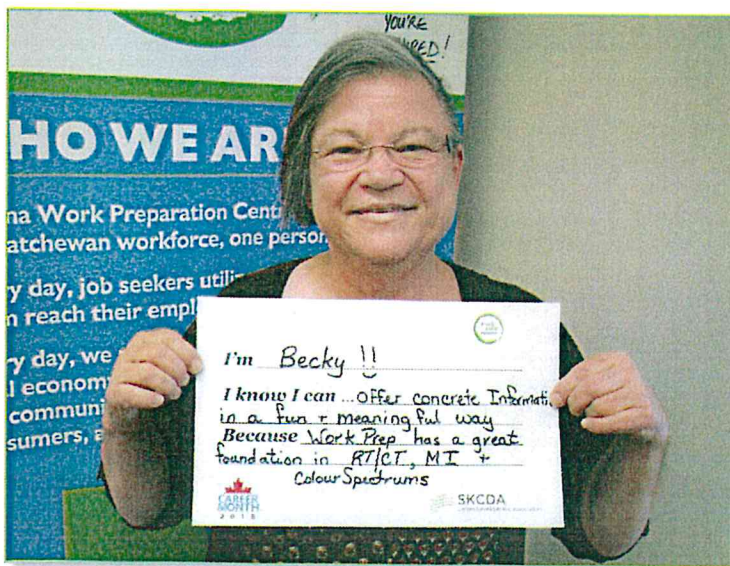 YOU'RE
HO WE AR
na Work Preparation Cent
atchewan workforce, one person
y day, job seekers utili
n reach their empl
y day, we
l econom
communi
sumers, a
I'm Becky !!
I know I can ... offer concrete Informati
in a fun + meaningful way
Because Work Prep has a great
foundation in RT/CT, MI +
Colour Spectrums
CAREER
MONTH
2015
SKCDA